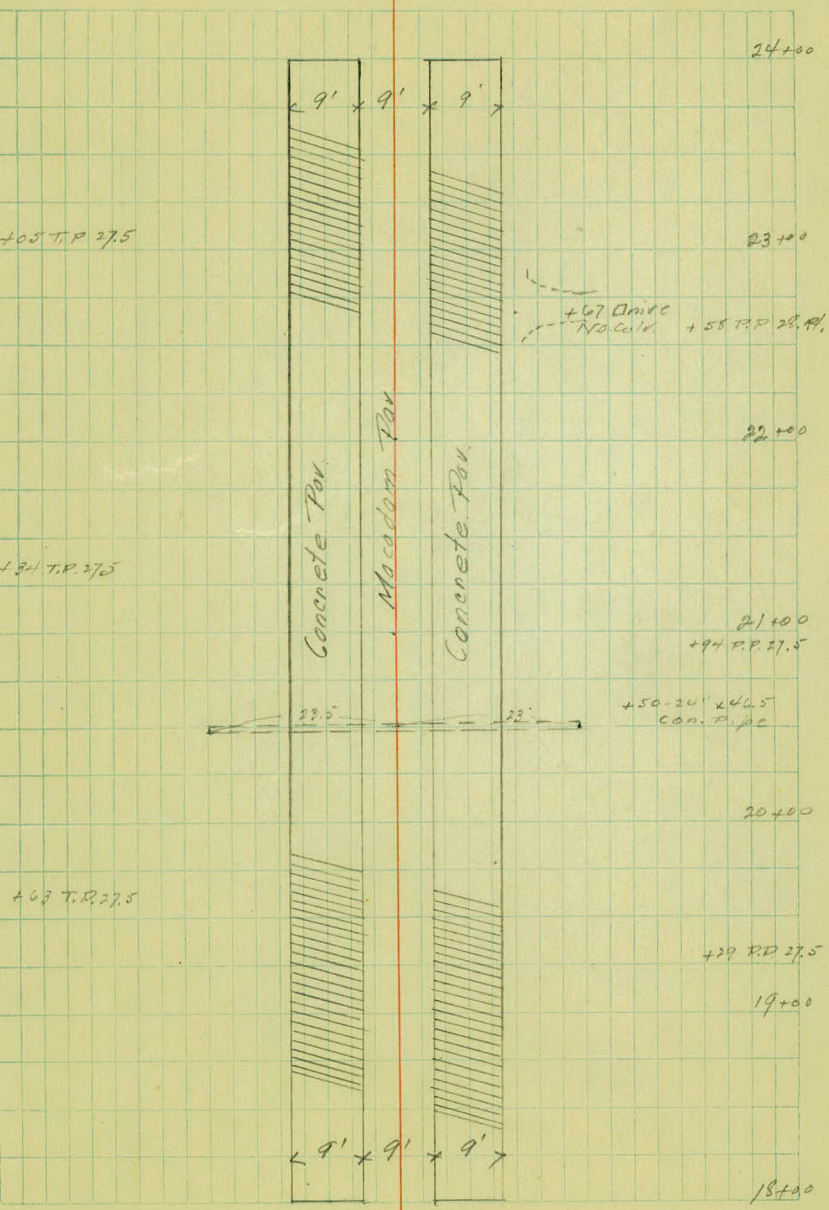 24+00
9' 9' 9'
+05 T.P. 27.5
23+00
+67 Drive
No Culv.
+58 P.P. 28.
22+00
Concrete Pav.
Macadam Pav
Concrete Pav.
+34 T.P. 27.5
21+00
+94 P.P. 27.5
23.5 23'
+50-24" x 46.5
Con. Pipe
20+00
+63 T.P. 27.5
+29 P.P. 27.5
19+00
9' 9' 9'
18+00